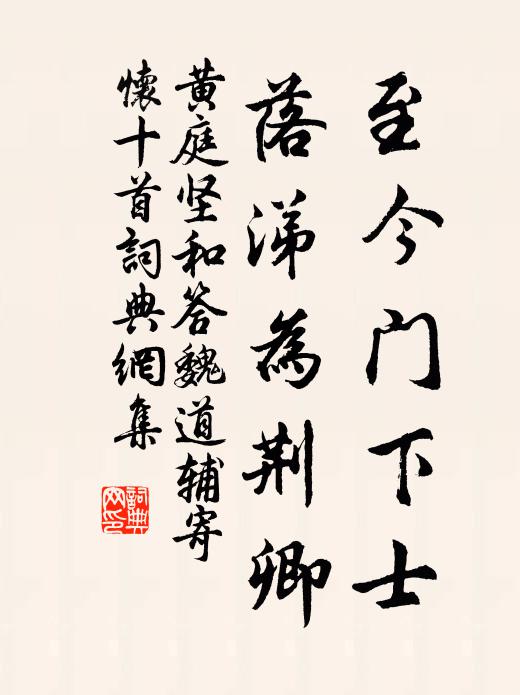 至今门下士
落涕為荆卿
黄庭坚和答魏道辅寄
懷十首詞典網集
詞典
网印